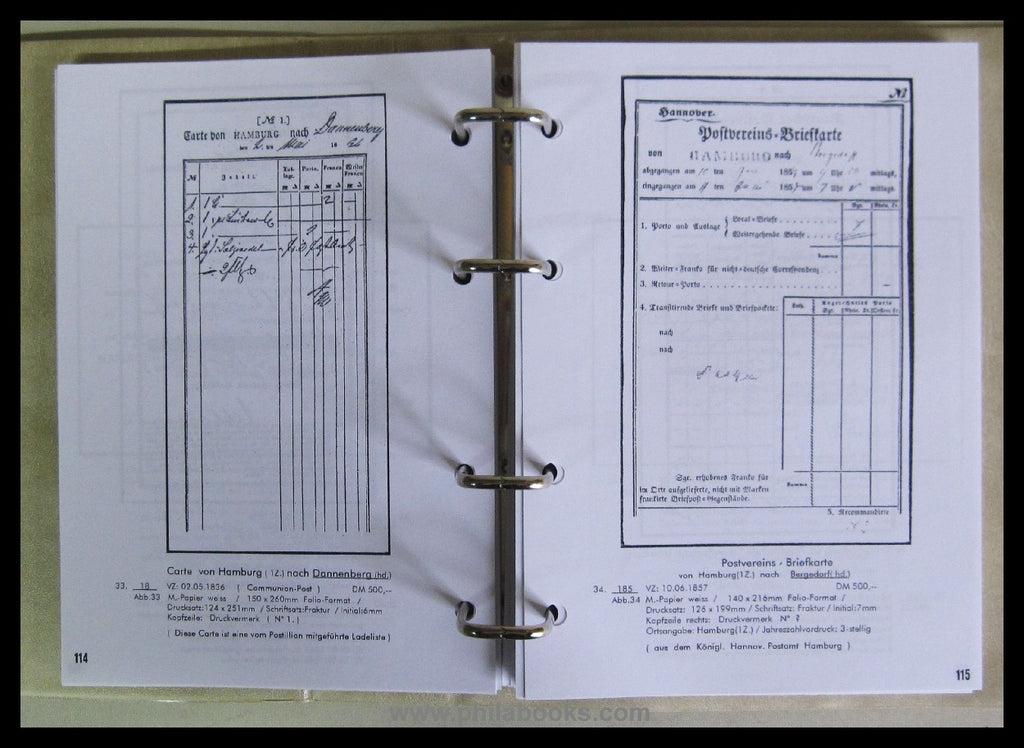 [№ 1.]
Carte von HAMBURG nach Dannenberg
Mai
№
Inhalt
Porto.
Franco
Weiter Franco
1.
2.
3.
4.
Carte von Hamburg (1Z.) nach Dannenberg (hd.)
33. 18 VZ: 02.05.1826 ( Communion-Post ) DM 500,--
Abb.33 M.-Papier weiss / 150 x 260mm Folio-Format /
Drucksatz: 124 x 251mm / Schriftsatz: Fraktur / Initial: 6mm
Kopfzeile: Druckvermerk ( N° 1. )
( Diese Carte ist eine vom Postillion mitgeführte Ladeliste )
114
№
Hannover.
Postvereins-Briefkarte
von HAMBURG nach
abgegangen am ten 185 um Uhr mittags,
eingegangen am ten 185 um 7 Uhr mittags.
Sgr.
1. Porto und Auslage { Local-Briefe
Weitergehende Briefe
Summa
2. Weiter-Franko für nicht-deutsche Correspondenz
3. Retour-Porto
4. Transitirende Briefe und Briefpackete:
nach
nach
Sgr. erhobenes Franko für
im Orte aufgelieferte, nicht mit Marken
frankirte Briefpost-Gegenstände.
Summa
5. Recommandirte
Postvereins - Briefkarte
von Hamburg(1Z.) nach Bergedorf( hd.)
34. 185 VZ: 10.06.1857 DM 500,--
Abb.34 M.-Papier weiss / 140 x 216mm Folio-Format /
Drucksatz: 126 x 199mm / Schriftsatz: Fraktur / Initial: 7mm
Kopfzeile rechts: Druckvermerk N° ?
Ortsangabe: Hamburg(1Z.) / Jahrezzahlvordruck: 3-stellig
( aus dem Königl. Hannov. Postamt Hamburg )
115
www.philabooks.com